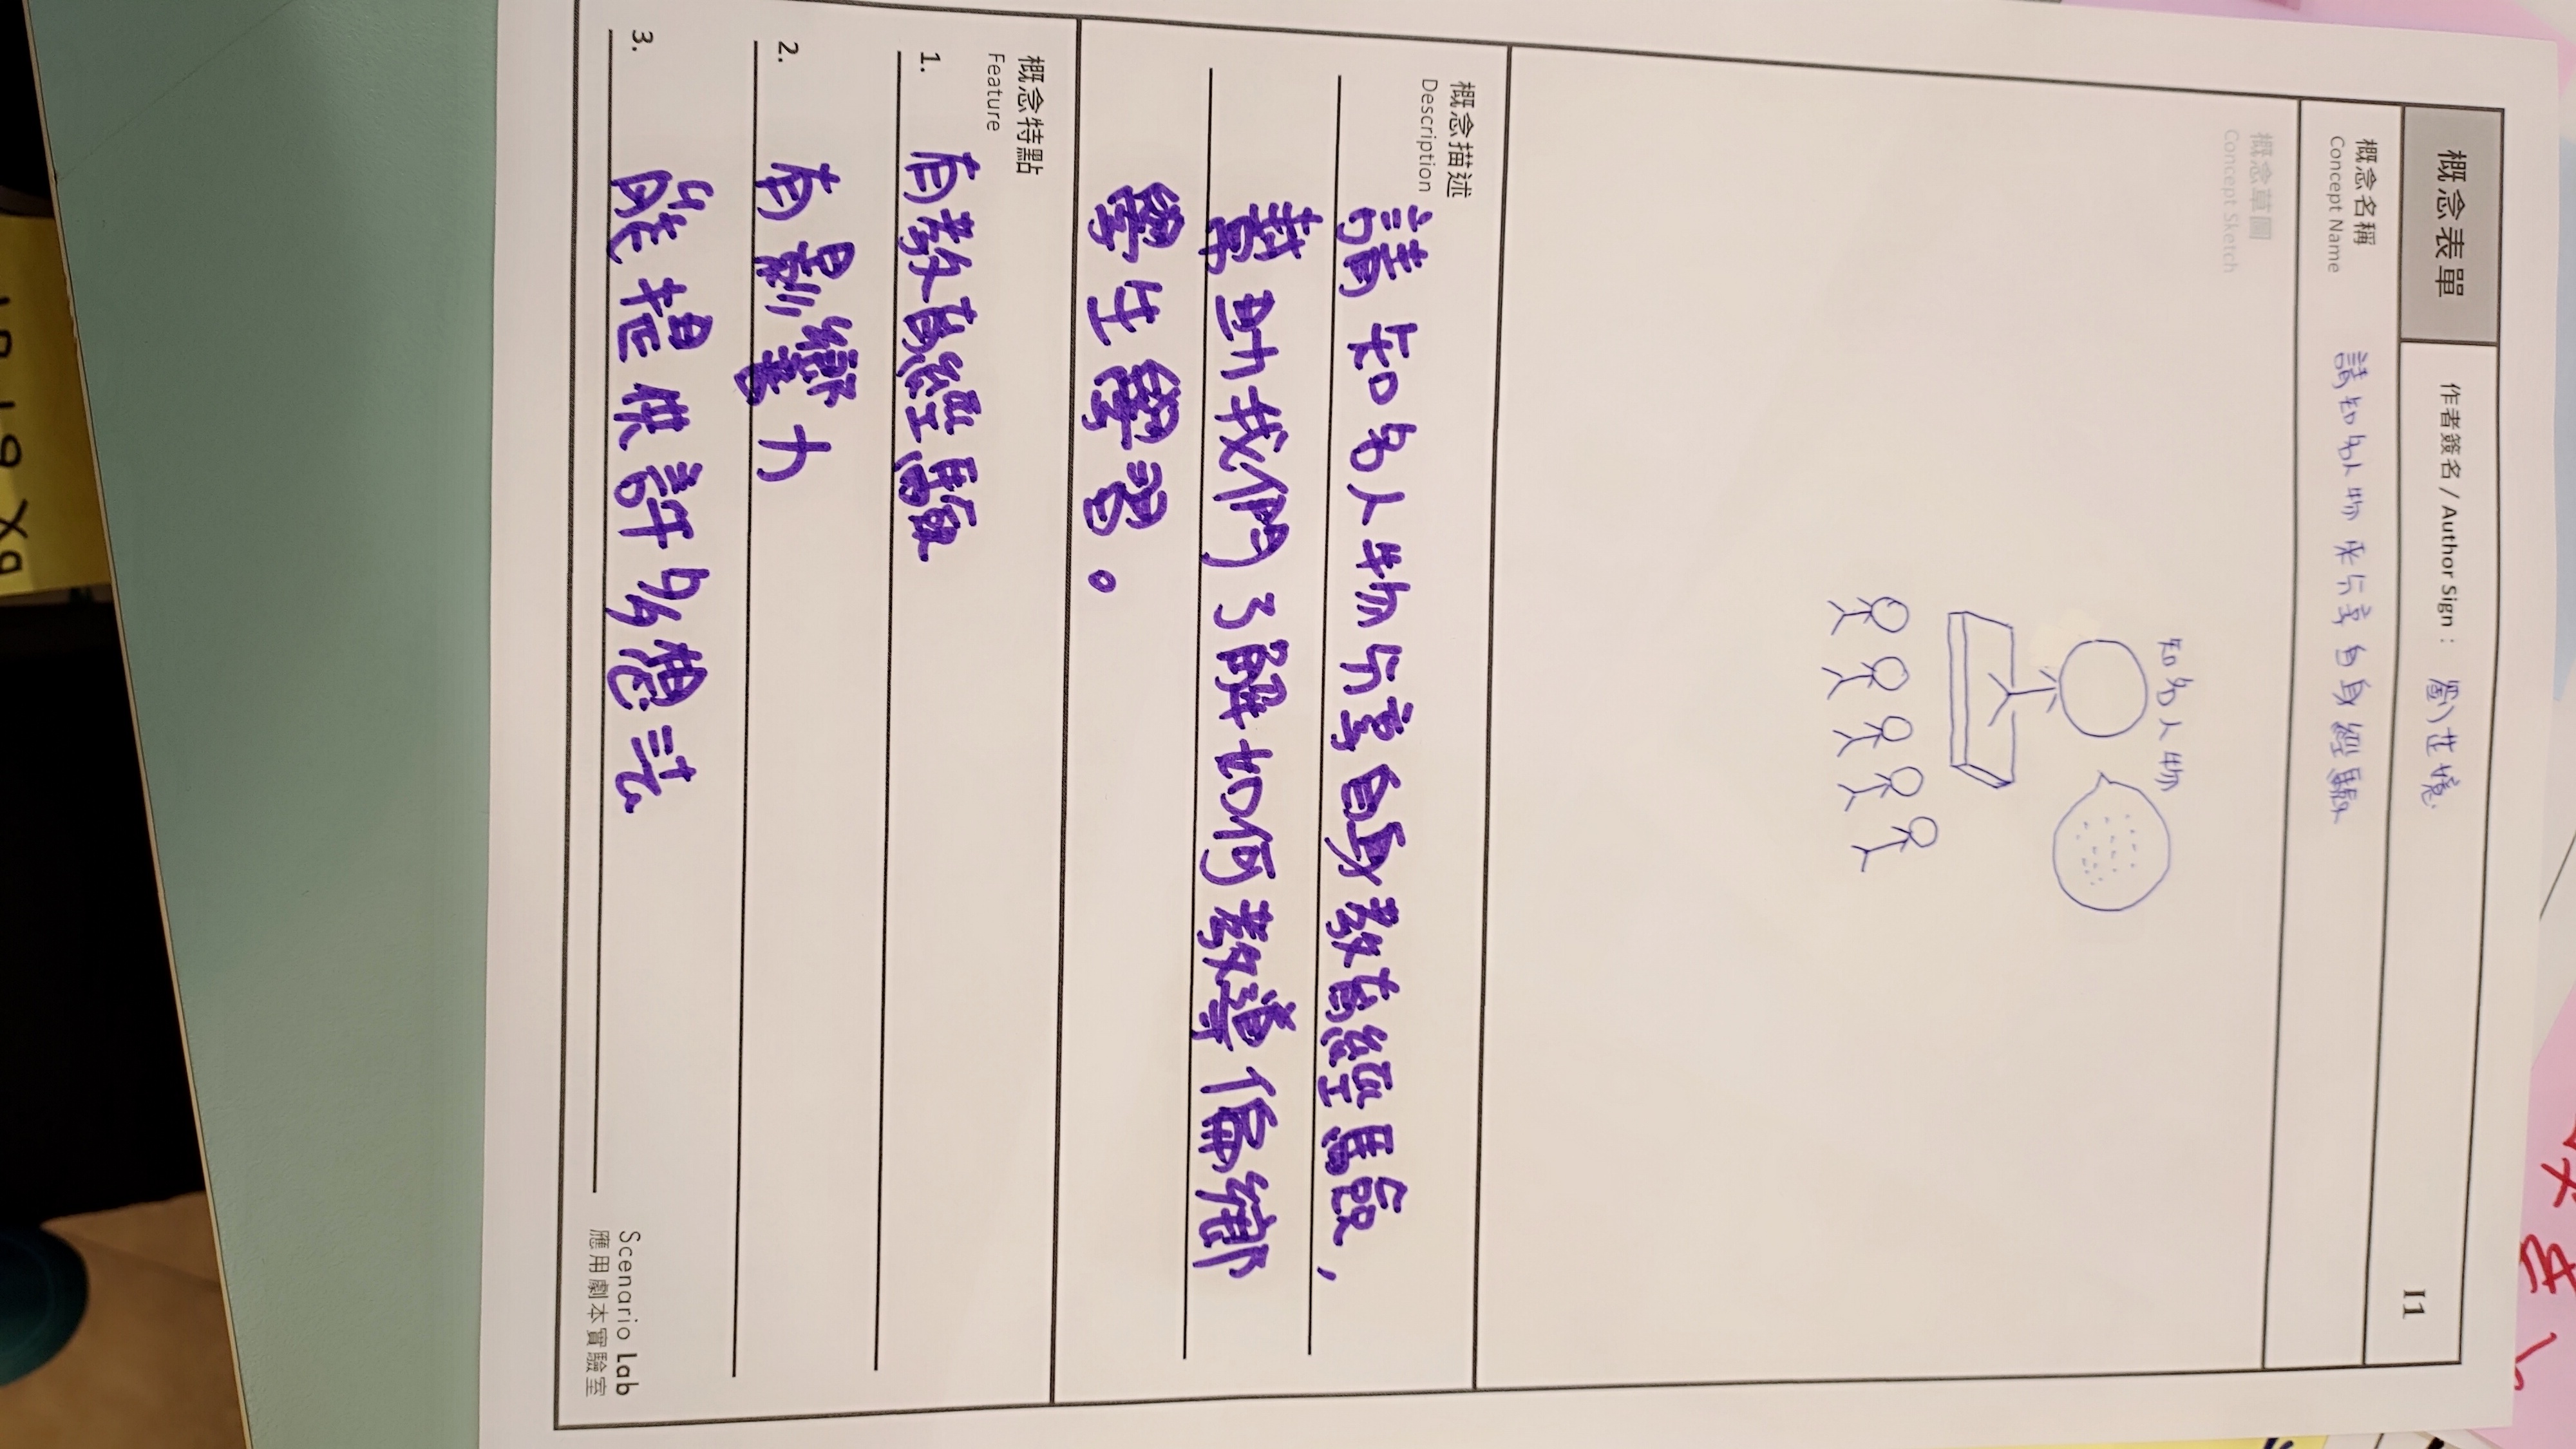 概念表單
作者簽名 / Author Sign：
I1
概念名稱
Concept Name
請知名人物來分享自身經驗
概念草圖
Concept Sketch
知名人物
概念描述
Description
請知名人物分享自身教育經驗，
幫助我們了解如何教導偏鄉
學生學習。
概念特點
Feature
1. 有教育經驗
2. 有影響力
3. 能提供許多想法
Scenario Lab
應用劇本實驗室